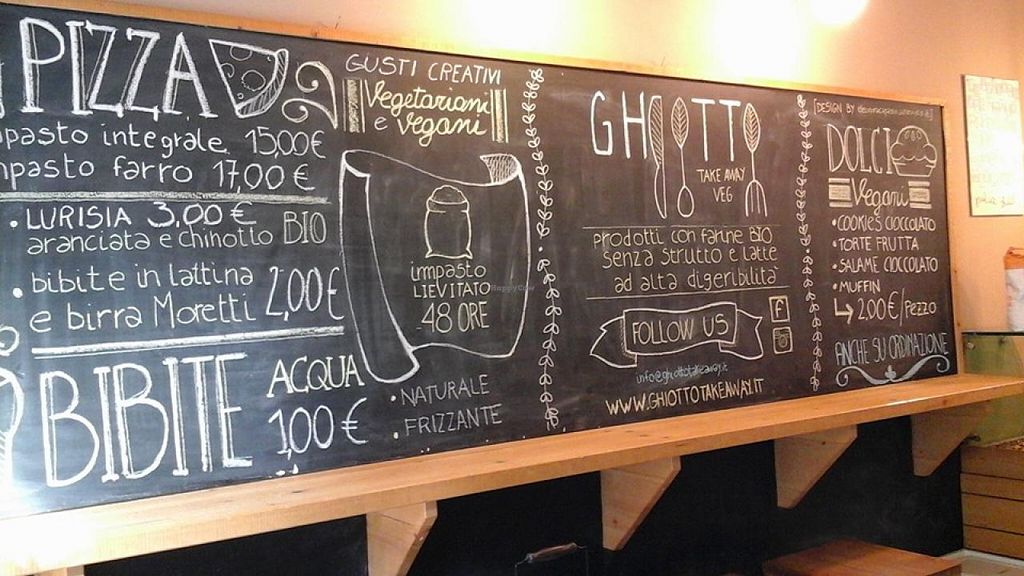 PIZZA
impasto integrale 15,00€
impasto farro 17,00€
• LURISIA 3,00€
aranciata e chinotto BIO
• bibite in lattina
e birra Moretti 2,00€
BIBITE
ACQUA
1,00€
• NATURALE
• FRIZZANTE
GUSTI CREATIVI
Vegetariani
e vegani
impasto
LIEVITATO
48 ORE
GHIOTTO
TAKE AWAY
VEG
prodotti con farine BIO
senza strutto e latte
ad alta digeribilità
FOLLOW US
f
info@ghiottotakeaway.it
WWW.GHIOTTOTAKEAWAY.IT
DESIGN BY
DOLCI
Vegani
• COOKIES CIOCCOLATO
• TORTE FRUTTA
• SALAME CIOCCOLATO
• MUFFIN
↳ 2,00€/Pezzo
ANCHE SU ORDINAZIONE
HappyCow